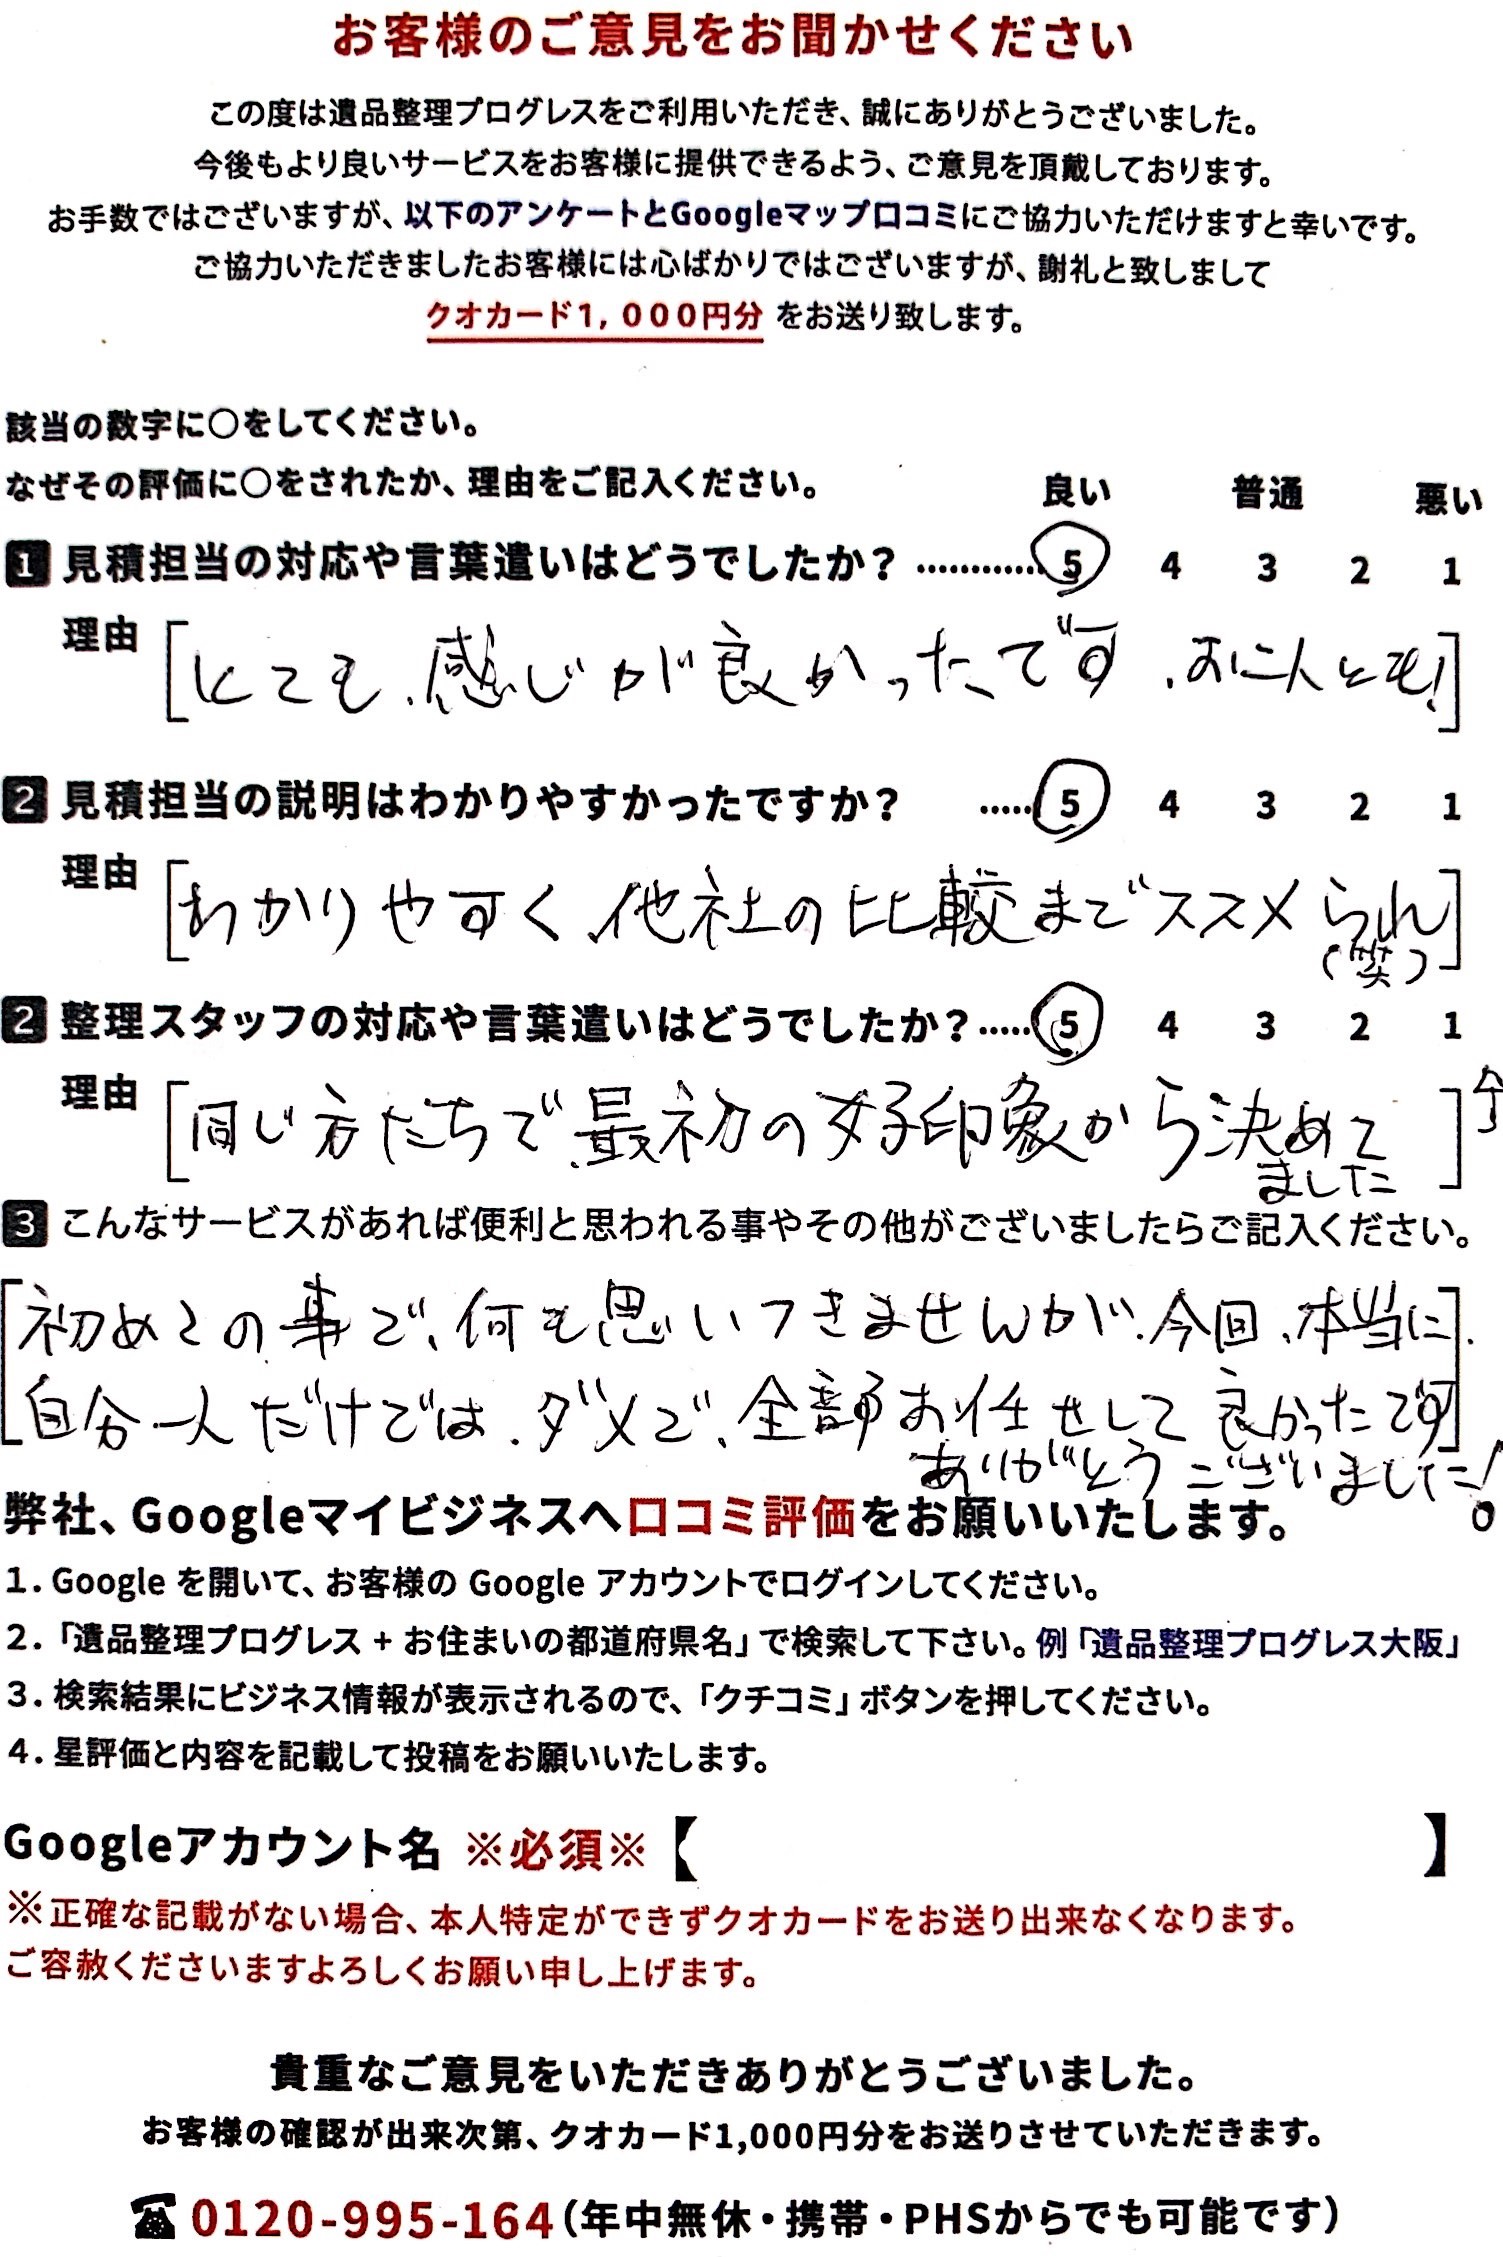 お客様のご意見をお聞かせください
この度は遺品整理プログレスをご利用いただき、誠にありがとうございました。
今後もより良いサービスをお客様に提供できるよう、ご意見を頂戴しております。
お手数ではございますが、以下のアンケートとGoogleマップ口コミにご協力いただけますと幸いです。
ご協力いただきましたお客様には心ばかりではございますが、謝礼と致しまして
クオカード1,000円分 をお送り致します。
該当の数字に〇をしてください。
なぜその評価に〇をされたか、理由をご記入ください。 良い 普通 悪い
1 見積担当の対応や言葉遣いはどうでしたか？ ............ 5 4 3 2 1
理由 [とても、感じが良かったです、お二人とも!]
2 見積担当の説明はわかりやすかったですか？ ..... 5 4 3 2 1
理由 [わかりやすく、他社の比較までススメられ]
(笑)
2 整理スタッフの対応や言葉遣いはどうでしたか？..... 5 4 3 2 1
理由 [同じ方たちで、最初の好印象から決めて]
ました
3 こんなサービスがあれば便利と思われる事やその他がございましたらご記入ください。
[初めての事で、何も思いつきませんが、今回、本当に
自分一人だけでは、ダメで、全部お任せして良かったです]
ありがとうございました!
弊社、Googleマイビジネスへ口コミ評価をお願いいたします。
1. Google を開いて、お客様の Google アカウントでログインしてください。
2.「遺品整理プログレス + お住まいの都道府県名」で検索して下さい。例「遺品整理プログレス大阪」
3. 検索結果にビジネス情報が表示されるので、「クチコミ」ボタンを押してください。
4. 星評価と内容を記載して投稿をお願いいたします。
Googleアカウント名 ※必須※【 】
※正確な記載がない場合、本人特定ができずクオカードをお送り出来なくなります。
ご容赦くださいますよろしくお願い申し上げます。
貴重なご意見をいただきありがとうございました。
お客様の確認が出来次第、クオカード1,000円分をお送りさせていただきます。
☎0120-995-164(年中無休・携帯・PHSからでも可能です)